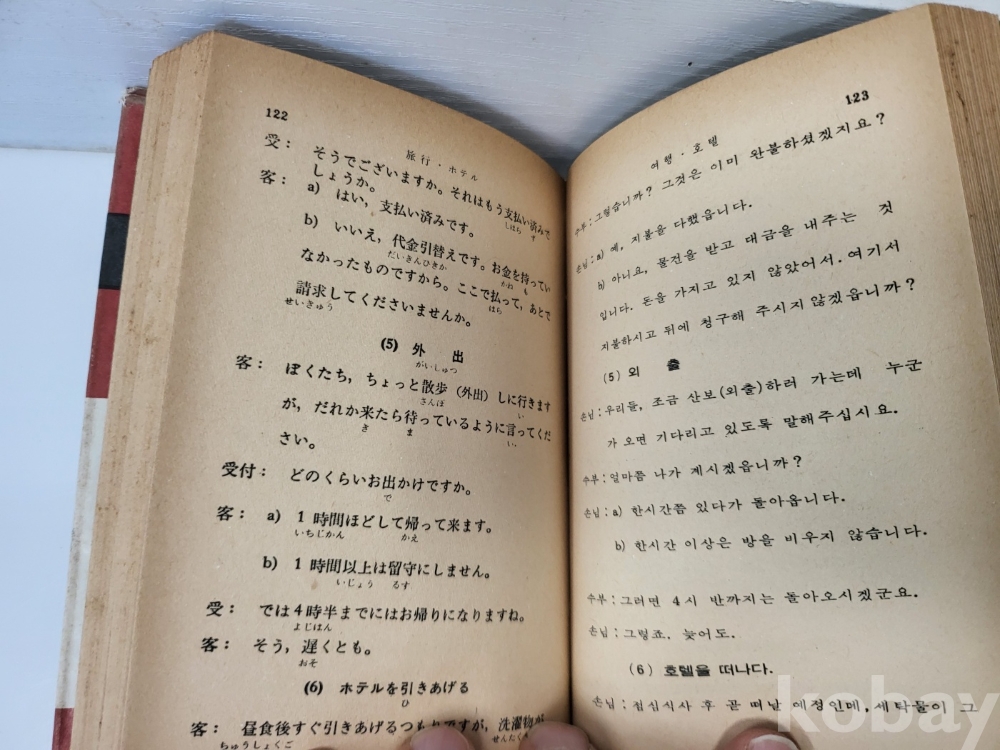 122
旅行・ホテル
受： そうでございますか。それはもう支払い済みで
しはら す
しょうか。
客： a) はい，支払い済みです。
b) いいえ，代金引替えです。お金を持ってい
だいきんひきか かね も
なかったものですから。ここで払って，あとで
はら
請求してくださいませんか。
せいきゅう
(5) 外 出
がいしゅつ
客： ぼくたち，ちょっと散歩（外出）しに行きます
さんぽ い
が，だれか来たら待っているように言ってくだ
き ま い
さい。
受付： どのくらいお出かけですか。
で
客： a) 1 時間ほどして帰って来ます。
いちじかん かえ
b) 1 時間以上は留守にしません。
いじょう るす
受： では4時半までにはお帰りになりますね。
よじはん
客： そう，遅くとも。
おそ
(6) ホテルを引きあげる
ひ
客： 昼食後すぐ引きあげるつもりですが，洗濯物が
ちゅうしょくご せんたく
123
여행・호텔
수부:그렇습니까? 그것은 이미 완불하셨겠지요?
손님:a) 예, 지불을 다했읍니다.
b) 아니요, 물건을 받고 대금을 내주는 것
입니다. 돈을 가지고 있지 않았어서. 여기서
지불하시고 뒤에 청구해 주시지 않겠읍니까?
(5) 외 출
손님:우리들, 조금 산보(외출)하러 가는데 누군
가 오면 기다리고 있도록 말해주십시요.
수부:얼마쯤 나가 계시겠읍니까?
손님:a) 한시간쯤 있다가 돌아옵니다.
b) 한시간 이상은 방을 비우지 않습니다.
수부:그러면 4시 반까지는 돌아오시겠군요.
손님:그렇죠. 늦어도.
(6) 호텔을 떠나다.
손님:점심식사 후 곧 떠날 예정인데, 세탁물이 그
kobay